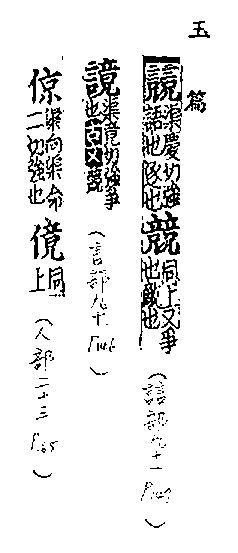 玉篇
渠慶切強語也逐也 競 同上又爭也
(誩部九十一 P149)
渠竟切強爭也古文競
(言部九十 P146)
倞 渠向渠命二切強也 傹 同上
(人部二十三 P.65)